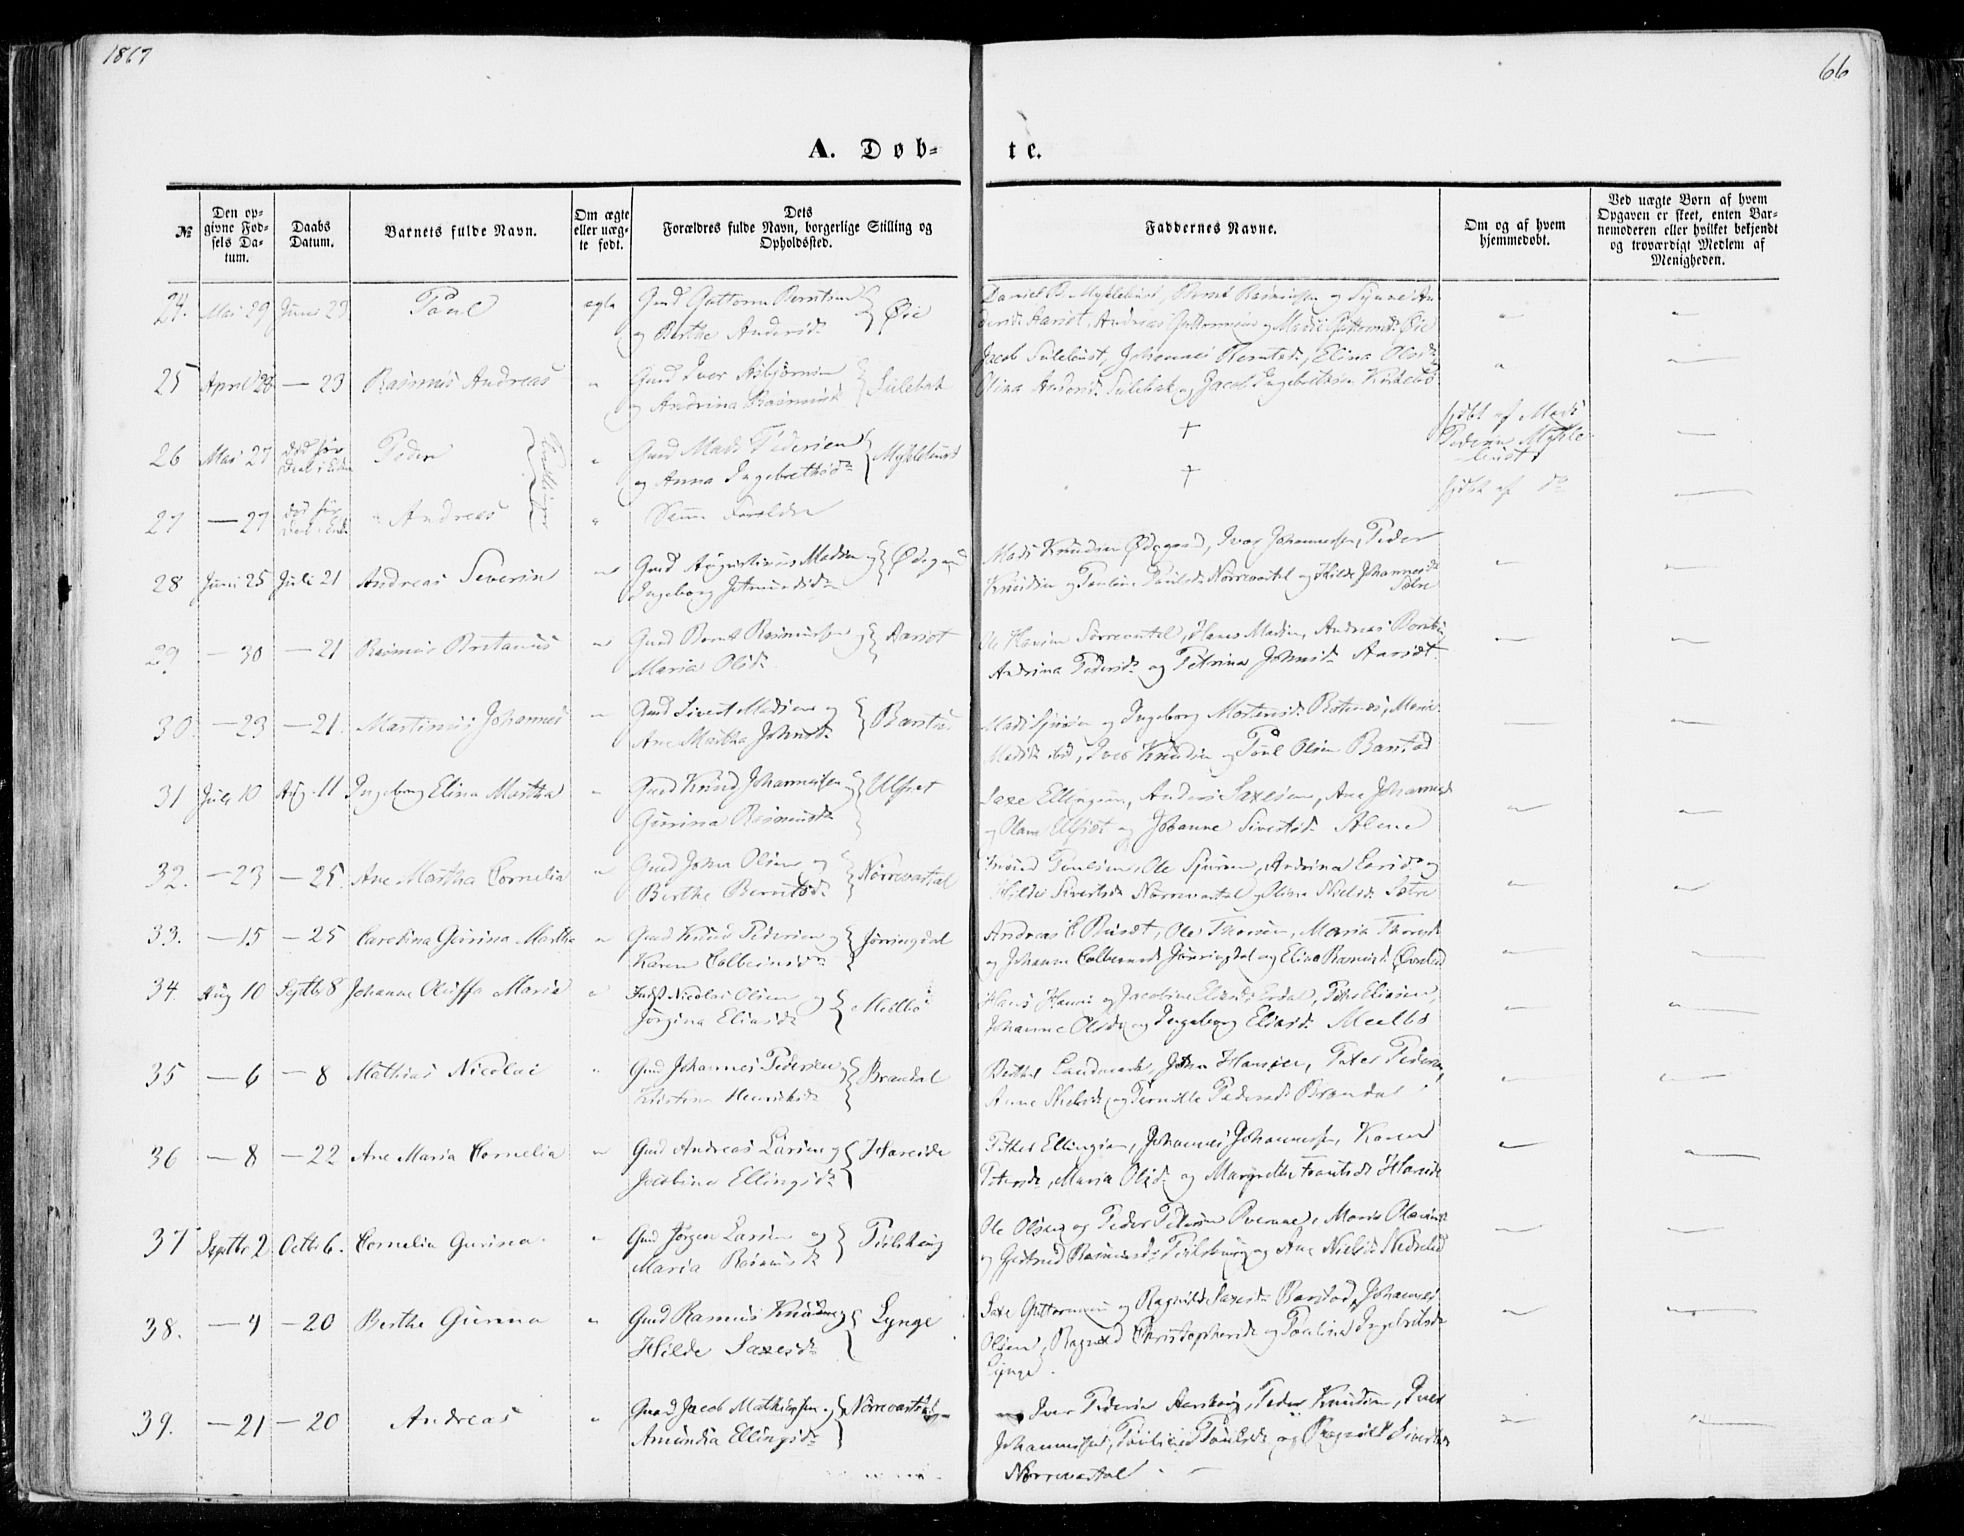 1867
66
A. Døb-
te.
№
Den op-
givne Fød-
sels Da-
tum.
Daabs
Datum.
Barnets fulde Navn.
Om ægte
eller uæg-
te født.
Dets
Forældres fulde Navn, borgerlige Stilling og
Opholdssted.
Faddernes Navne.
Om og af hvem
hjemmedøbt.
Ved uægte Børn af hvem
Opgaven er skeet, enten Bar-
nemoderen eller hvilket bekjendt
og troværdigt Medlem af
Menigheden.
24. Mai 29 Juni 23 Paul ægte Gmd Guttorm Berntsen
og Berthe Andersd. } Øie
Daniel B. Myklebust, Bernt Rasmussen og Synne An-
dersd. Hariot, Andreas Guttormsen og Guttormsd. Øie
25 April 28 — 23 Rasmus Andreas " Gmd Iver Asbjørnsen
og Andrina Rasmusd. } Sulebak
Jacob Sulebust, Johannes Berntsen, Elina Olsd.
Olina Andersd. Sulebak og Jacob Ingebrigtsen
26 Mai 27 død før Peder " Gmd Mads Pedersen
og Anna Ingebretsd. } Myklebust
+
hjdbt af Mads
Pedersen Mykle-
bust
27 — 27 død før " Andreas " Samme Forældre
+
hjdbt af do
28 Juni 25 Juli 21 Andreas Severin " Gmd Augustinus Madsen og
Ingeborg } Ødegaard
Mads Knudsen Ødegaard, Ivar Johannessen, Peder
Knudsen og Pauline Paulsd. Nørrevartdal og Hilde Johannesd.
Sætre
29 — 30 — 21 Rasmus Bertanus " Gmd Bernt Rasmussen og
Maria Olsd. } Aarset
Ole Hansen Sørrevartdal, Hans Madsen, Andreas
Andrina Pedersd. og Petrina Johnsd. Aarset
30 — 23 — 21. Martinus Johannes " Gmd Sivert Madsen og
Ane Martha Johnsd. } Barstad
Mads Sjursen og Ingeborg Mortensd. Botnen, Marie
Madsd. ibid, Iver Knudsen og Paul Olsen Barstad
31 Juli 10 Aug. 11 Ingeborg Elina Martha " Gmd Knud Johannessen og
Gurina Rasmusd. } Ulfset
Saxe Ellingsen, Anders Saxesen, Ane Johannesd.
og Olane Ulfset og Johanne Sivertsd. Alme
32. — 23 — 25. Ane Martha Cornelia " Gmd John Olsen og
Berthe Berntsd. } Nørrevartdal
Knud Paulsen, Ole Sjursen, Andrina Larsd. og
Hilde Sivertsd. Nørrevartdal og Olina Nielsd. Sætre
33. — 15 — 25 Carolina Gurina Martha " Gmd Knud Pedersen og
Karen Colbeinsd. } Jørringdal
Andreas E. Buset, Ole Thorsen, Maria Thorsd.
og Johanne Colbensd. Jørringdal og Eline Rasmusd. Øvrelid
34. Aug 10 Septbr 8 Johanne Oluffa Maria " Indst Nicolai Olsen og
Jørgina Eliasd. } Melbø
Hans Hansen og Jacobine Eliasd. Eidal, Peter Eliasen,
Johanne Olsd. og Ingeborg Eliasd. Meelbø
35 — 6 — 8 Mathias Nicolai " Gmd Johannes Pedersen og
Kristine Henriksd. } Brandal
Landmark, John Hansen, Peter Pedersen,
Anne og Pernille Pedersd. Brandal
36 — 8 — 22 Ane Maria Cornelia " Gmd Andreas Larsen og
Jacobine Ellingsd. } Hareide
Petter Ellingsen, Johannes Johannessen, Karen
Petersd., Maria Olsd. og Margrethe Frantsd. Hareide
37 Septbr 2 Octbr 6. Cornelia Gurina " Gmd Jørgen Larsen og
Maria Rasmusd. } Pilskog
Ole Olsen og Peder Pedersen Overvae, Maria
og Gjertrud Rasmusd. Pilskog og Ane Nielsd. Nedrelid
38. — 4 — 20 Berthe Gurina " Gmd Rasmus Knudsen og
Hilde Saxesd. } Lynge
Saxe Guttormsen og Ragnilde Saxesd. Barstad, Johannes
Olsen, Ragnild Christophersd. og Paulina Ingebretsd.
Lynge.
39. — 21 — 20 Andreas " Gmd Jacob Mathiassen og
Amundia Ellingsd. } Nørrevartdal
Iver Pedersen Aarskog, Peder Knudsen, Iver
Johannessen, Pauline Paulsd. og Ragnild Sivertsd.
Nørrevartdal